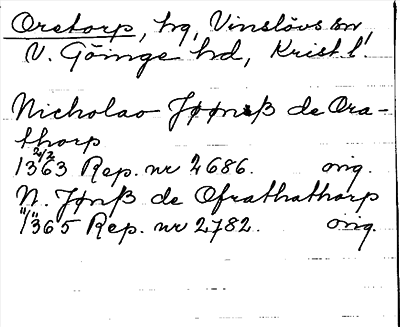 Oretorp, hg, Vinslövs sn,
V. Göinge hd, Krist l.
Nicholao Jønß de Ora-
thorp
24/2
1363 Rep. nr 2686. orig.
N. Jønß de Ofrathathorp
11/11
1365 Rep. nr 2782. orig.